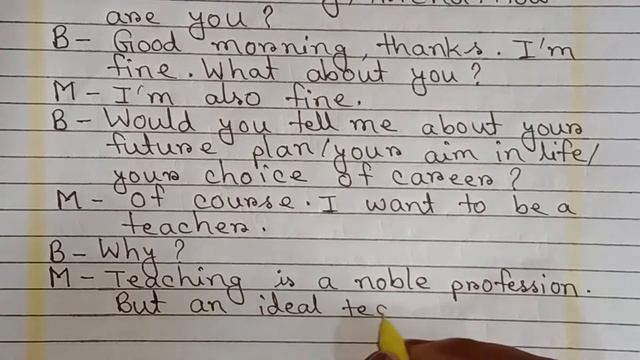 are you?
B- Good morning, thanks. I'm
fine. What about you?
M- I'm also fine.
B- Would you tell me about your
future plan/your aim in life/
your choice of career?
M- Of course. I want to be a
teacher.
B- Why?
M- Teaching is a noble profession.
But an ideal tea